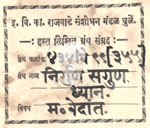 इ. वि. का. राजवाडे संशोधन मंडळ धुळें.
हस्त लिखित ग्रंथ संग्रह
ग्रंथ क्रमांक ४३५ वि ९९ (३५५)
ग्रंथ नाम निर्गुण सगुण
ध्यान.
विषय म. वेदांत.